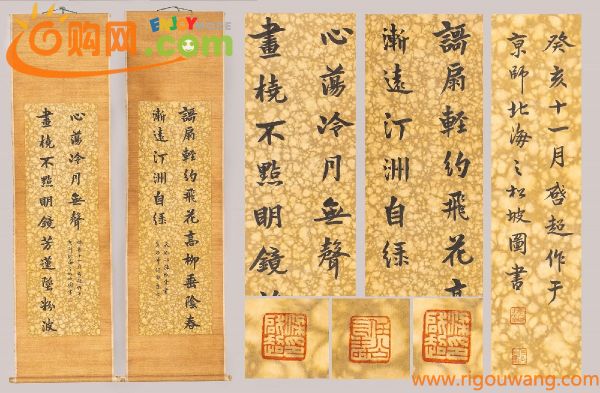 易购网
EJOYHOME
.com
謌扇輕約飛花高柳垂陰春
漸遠汀洲自綠
畫橈不點明鏡芳蓮墜粉波
心蕩冷月無聲
畫橈不點明鏡
心蕩冷月無聲
謌扇輕約飛花高
漸遠汀洲自綠
癸亥十一月啓超作于
京師北海之松坡圖書
www.rigouwang.com